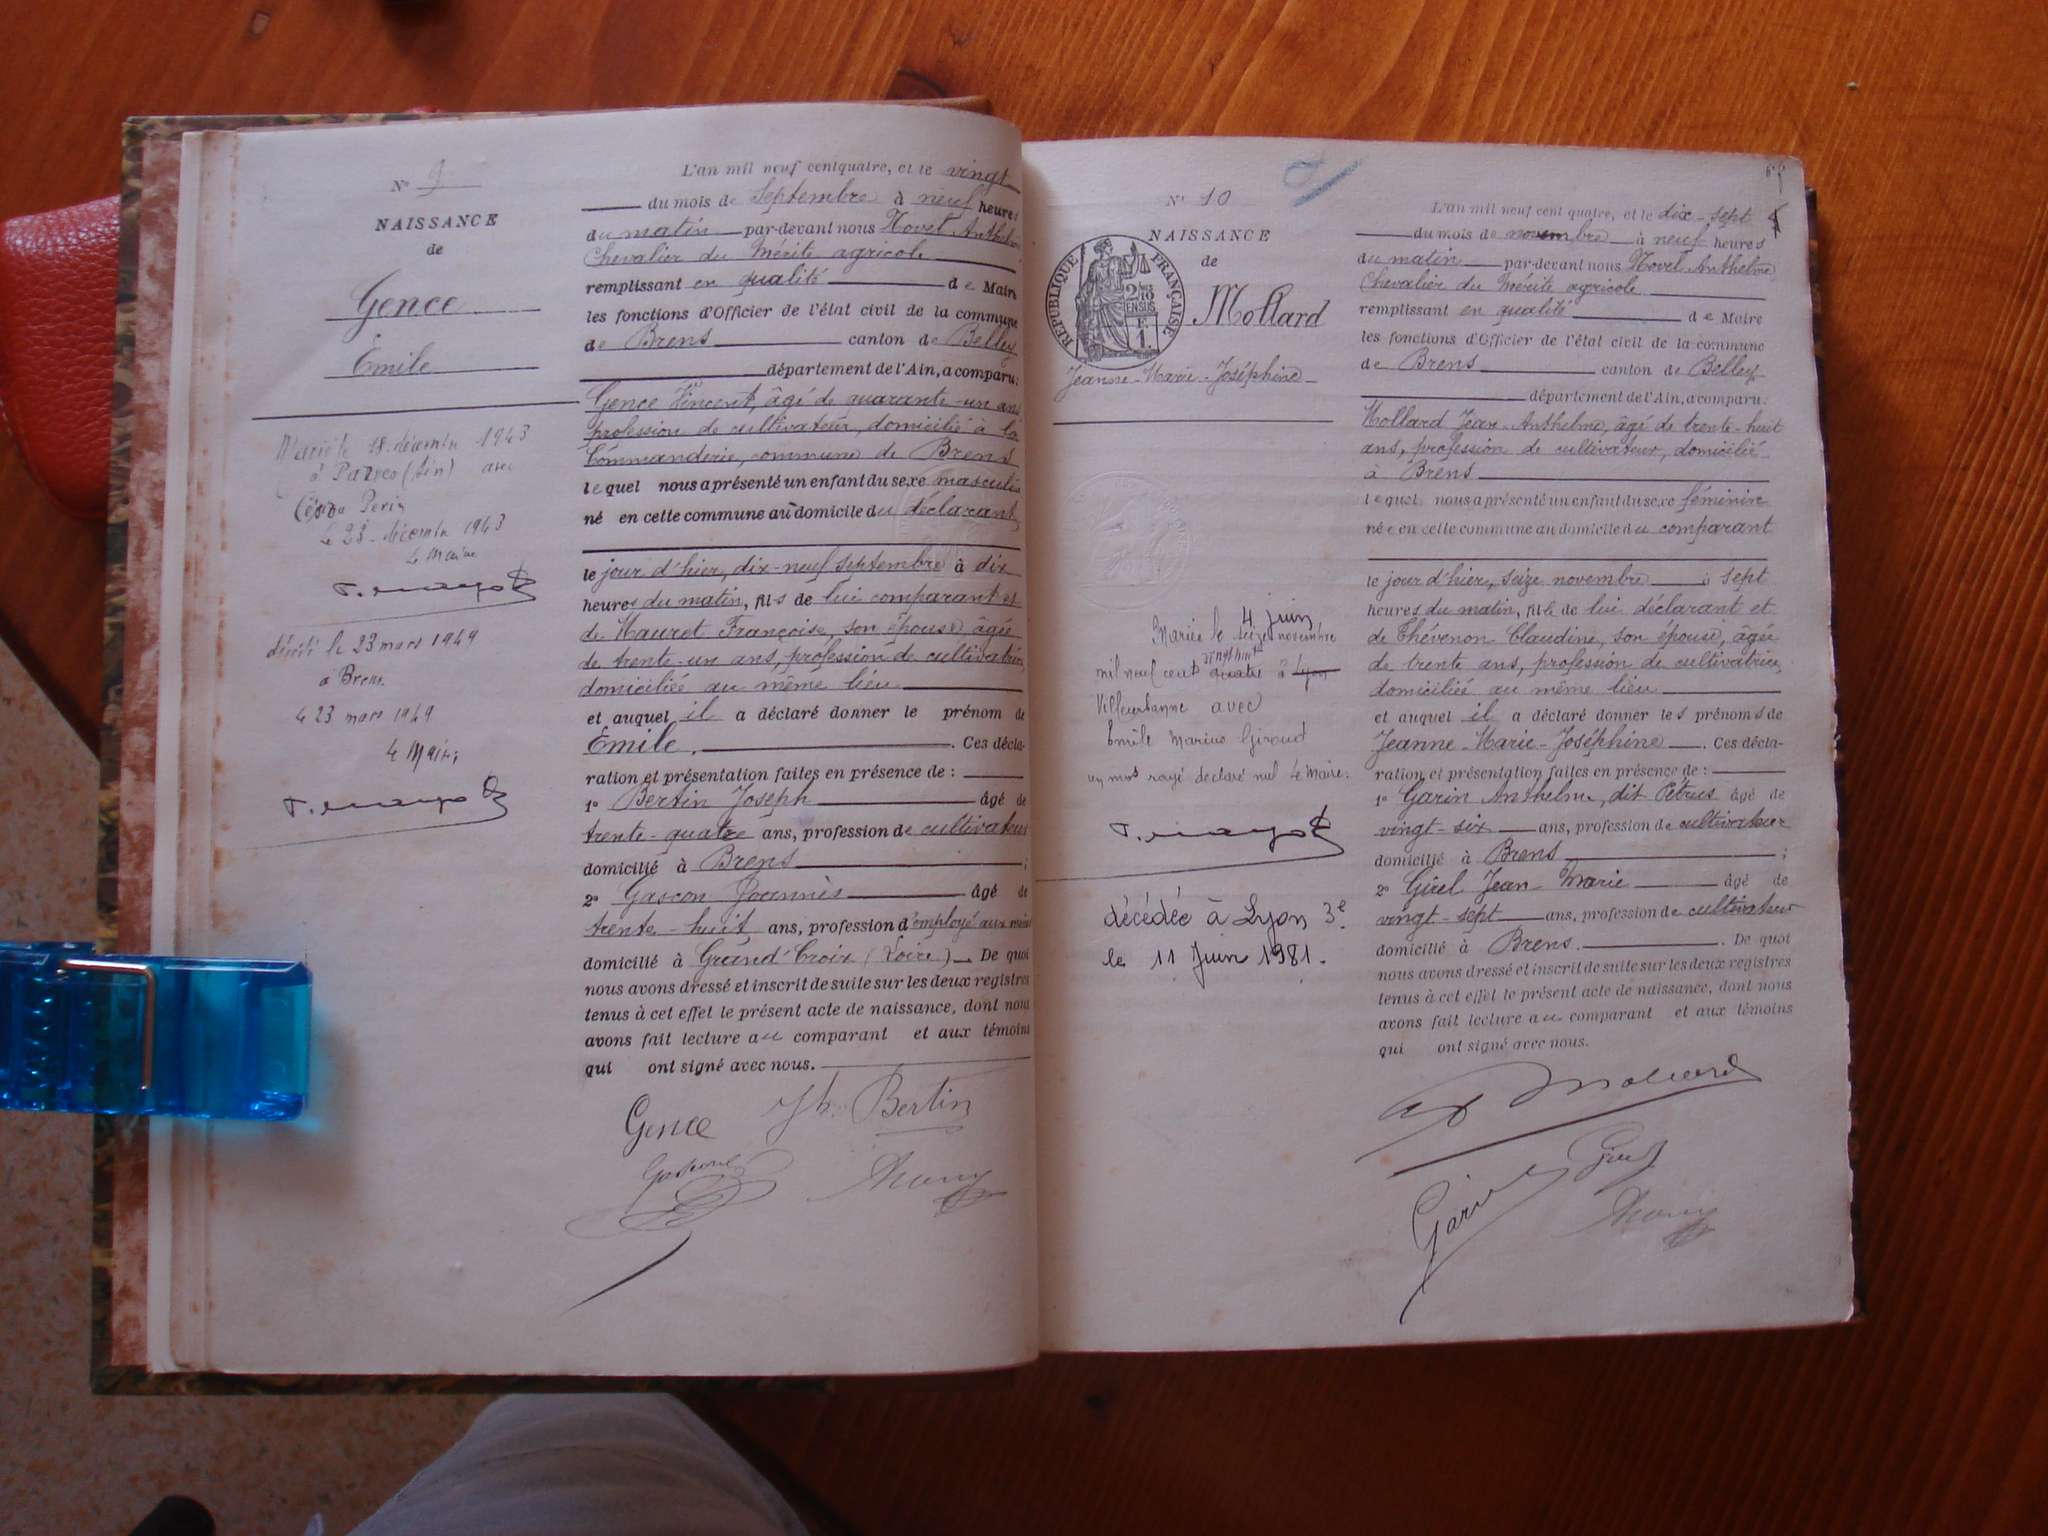 Nº 9
NAISSANCE
de
Gence
Émile
Marié le 18 décembre 1943
à (Ain) avec
Perin
le 23 décembre 1943
Le Maire
décédé le 23 mars 1949
à Brens
le 23 mars 1949
le Maire
L'an mil neuf centquatre, et le vingt
du mois de Septembre à neuf heures
du matin par-devant nous Hovel Anthelme
Chevalier du Mérite agricole
remplissant en qualité de Maire
les fonctions d'Officier de l'état civil de la commune
de Brens canton de Belley
département de l'Ain, a comparu:
Gence Vincent, âgé de quarante-un ans
profession de cultivateur, domicilié à la
Commanderie, commune de Brens
lequel nous a présenté un enfant du sexe masculin
né en cette commune au domicile du déclarant
le jour d'hier, dix-neuf septembre à dix
heures du matin, fils de lui comparant et
de Mauret Françoise, son épouse âgée
de trente-un ans, profession de cultivatrice,
domiciliée au même lieu
et auquel il a déclaré donner le prénom de
Émile. Ces décla-
ration et présentation faites en présence de :
1º Bertin Joseph âgé de
trente-quatre ans, profession de cultivateur
domicilié à Brens ;
2º Gascon Joannès âgé de
trente-huit ans, profession d'employé aux mines
domicilié à Grand'Croix (Loire). De quoi
nous avons dressé et inscrit de suite sur les deux registres
tenus à cet effet le présent acte de naissance, dont nous
avons fait lecture au comparant et aux témoins
qui ont signé avec nous.
Gence Jh. Bertin
Nº 10
NAISSANCE
de
RÉPUBLIQUE FRANÇAISE
Mollard
Jeanne-Marie-Joséphine
4 juin
Mariée le seize novembre
vingt huit
mil neuf cent quatre à Lyon
Villeurbanne avec
Émile Marius Giroud
un mot rayé déclaré nul Le Maire.
décédée à Lyon 3e
le 11 Juin 1981.
L'an mil neuf cent quatre, et le dix-sept
du mois de novembre à neuf heures
du matin par-devant nous Hovel Anthelme
Chevalier du Mérite agricole
remplissant en qualité de Maire
les fonctions d'Officier de l'état civil de la commune
de Brens canton de Belley
département de l'Ain, a comparu:
Mollard Jean-Anthelme, âgé de trente-huit
ans, profession de cultivateur, domicilié
à Brens
lequel nous a présenté un enfant du sexe féminin
née en cette commune au domicile du comparant
le jour d'hier, seize novembre à sept
heures du matin, fille de lui déclarant et
de Thévenon Claudine, son épouse, âgée
de trente ans, profession de cultivatrice,
domiciliée au même lieu
et auquel il a déclaré donner les prénoms de
Jeanne-Marie-Joséphine. Ces décla-
ration et présentation faites en présence de :
1º Garin Anthelme, dit Pétrus âgé de
vingt-six ans, profession de cultivateur
domicilié à Brens ;
2º Girel Jean Marie âgé de
vingt-sept ans, profession de cultivateur
domicilié à Brens. De quoi
nous avons dressé et inscrit de suite sur les deux registres
tenus à cet effet le présent acte de naissance, dont nous
avons fait lecture au comparant et aux témoins
qui ont signé avec nous.
Mollard
Garin Girel